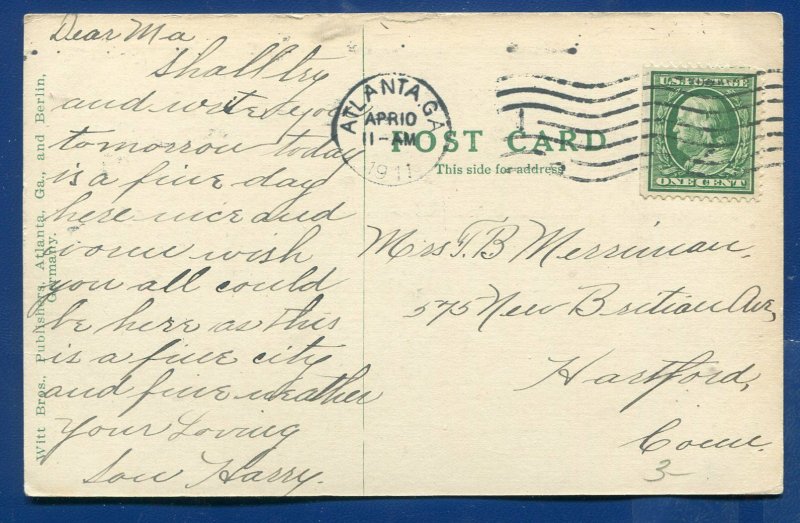 Dear Ma
Shall try
and write you
tomorrow today
is a fine day
here nice and
warm wish
you all could
be here as this
is a fine city
and fine weather
Your Loving
Son Harry.
Witt Bros., Publishers, Atlanta, Ga., and Berlin,
Germany.
ATLANTA, GA.
APR 10
11-AM
1911
POST CARD
This side for address
U.S. POSTAGE
ONE CENT
1
Mrs T. B Merriman.
575 New Britian Ave,
Hartford,
Conn.
3-